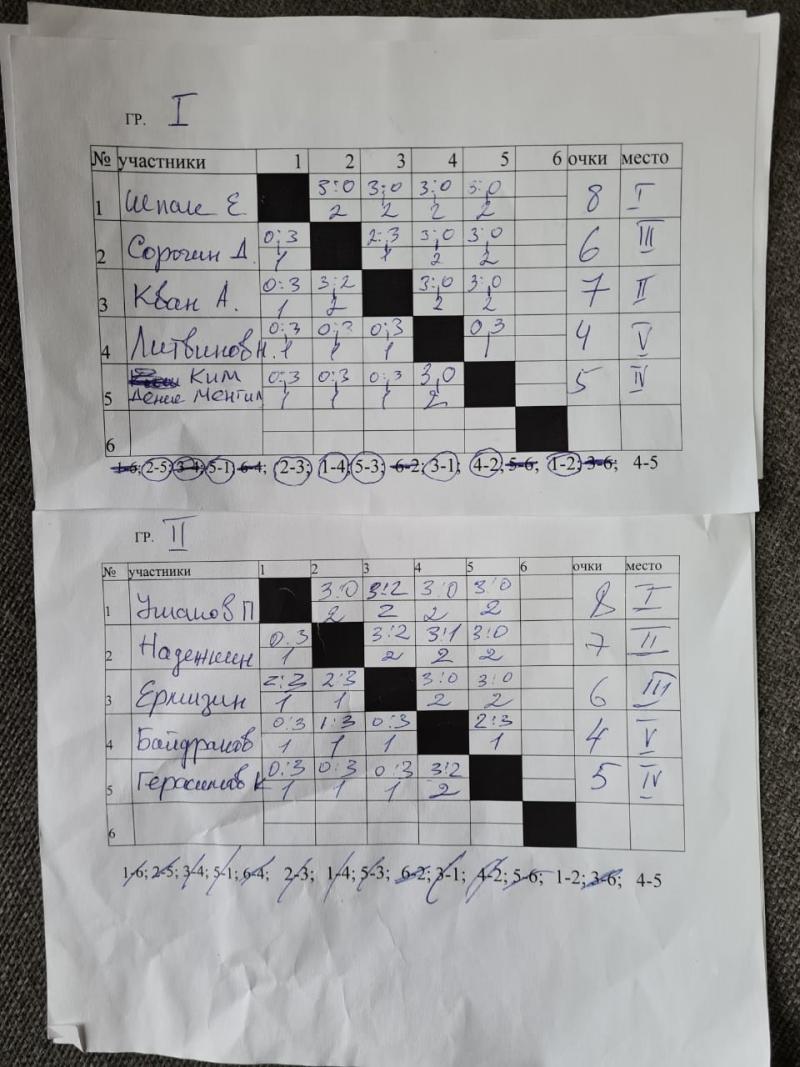 ГР. I
№ участники 1 2 3 4 5 6 очки место
1 Шпале Е 3:0 3:0 3:0 3:0 8 I
2 2 2 2
2 Сорочин Д. 0:3 2:3 3:0 3:0 6 III
1 1 2 2
3 Кван А. 0:3 3:2 3:0 3:0 7 II
1 2 2 2
4 Литвинов Н. 0:3 0:3 0:3 0:3 4 V
1 1 1 1
5 Ким 0:3 0:3 0:3 3:0 5 IV
Денис Менгил 1 1 1 2
6
1-6; 2-5; 3-4; 5-1; 6-4; 2-3; 1-4; 5-3; 6-2; 3-1; 4-2; 5-6; 1-2; 3-6; 4-5
ГР. II
№ участники 1 2 3 4 5 6 очки место
1 Ушаков П 3:0 3:2 3:0 3:0 8 I
2 2 2 2
2 Надежкин 0:3 3:2 3:1 3:0 7 II
1 2 2 2
3 Ермизин 2:3 2:3 3:0 3:0 6 III
1 1 2 2
4 Байдраков 0:3 1:3 0:3 2:3 4 V
1 1 1 1
5 Герасимов К 0:3 0:3 0:3 3:2 5 IV
1 1 1 2
6
1-6; 2-5; 3-4; 5-1; 6-4; 2-3; 1-4; 5-3; 6-2; 3-1; 4-2; 5-6; 1-2; 3-6; 4-5